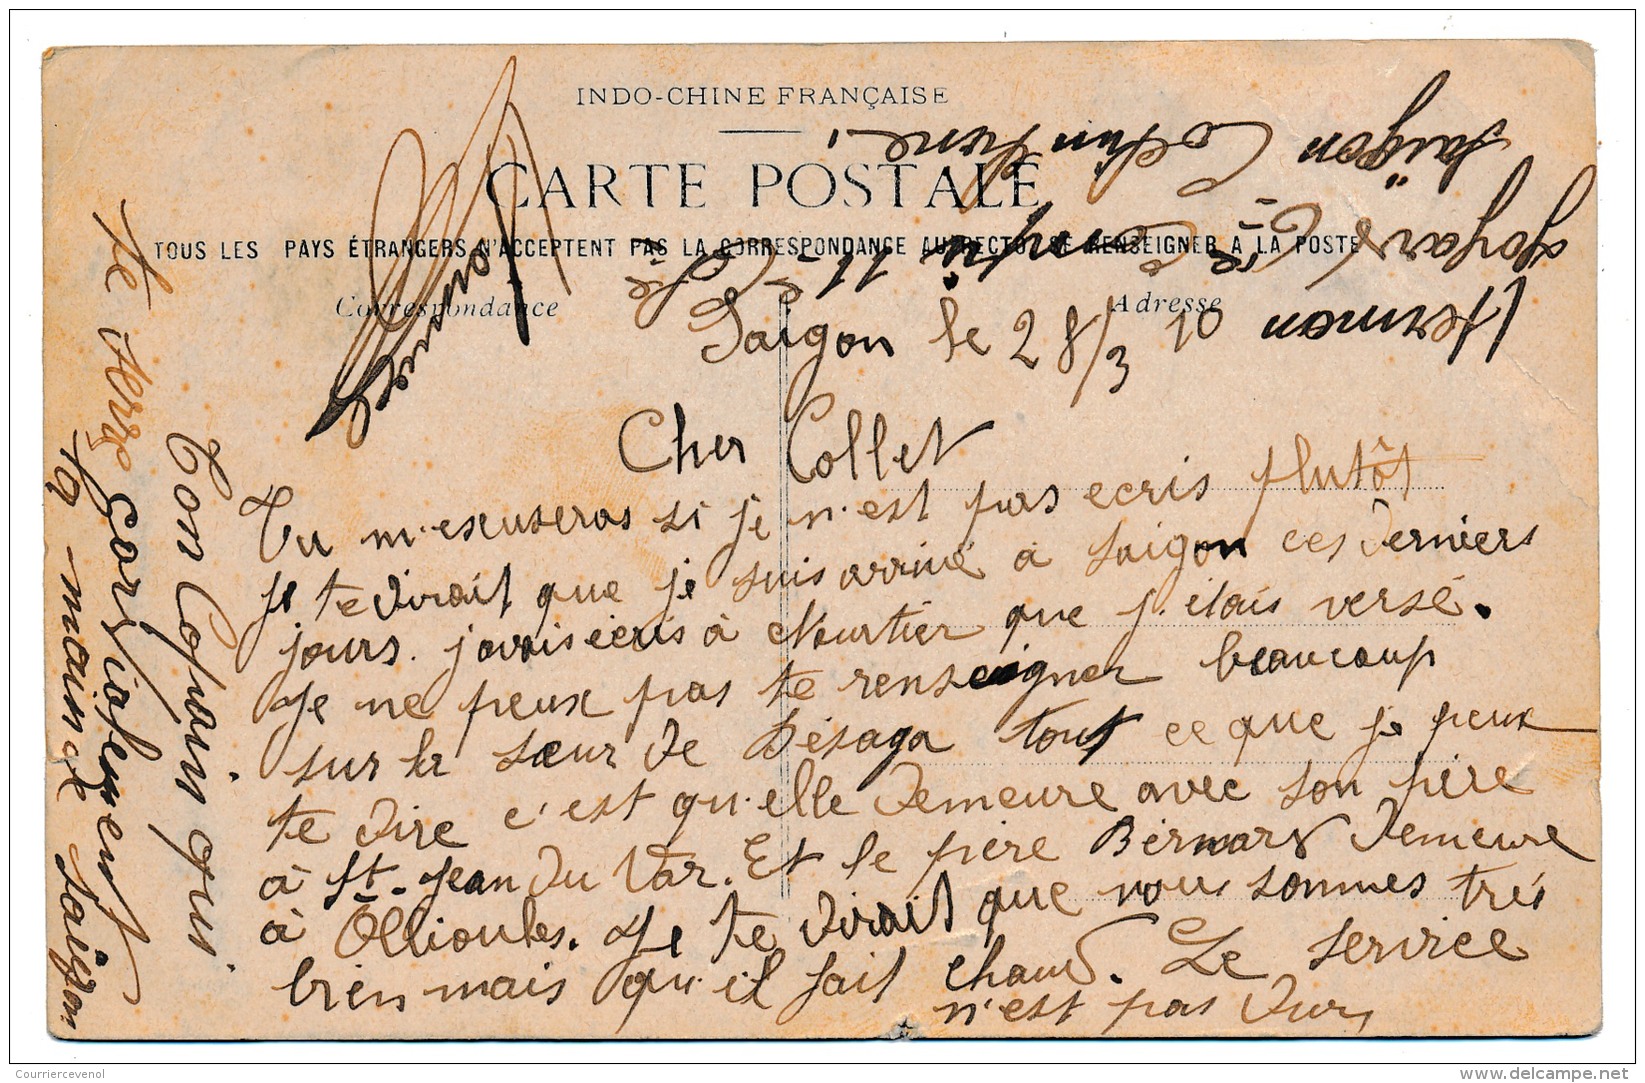 INDO-CHINE FRANÇAISE
CARTE POSTALE
TOUS LES PAYS ÉTRANGERS N'ACCEPTENT PAS LA CORRESPONDANCE AU RECTO (SE RENSEIGNER A LA POSTE
Correspondance
Adresse
Saigon le 28/3 10
Cher Collet
Tu m'excuseras si je n'est pas ecris plutôt
je te dirait que je suis arrivé à Saigon ces derniers
jours. j'avais ecris à Mourtier que j'etais versé.
Je ne peux pas te renseigner beaucoup
sur la sœur de Désaga tout ce que je peux
te dire c'est qu'elle demeure avec son père
à St-Jean du Var. Et le père Bernard demeure
à Ollioules. Je te dirait que nous sommes très
bien mais qu'il fait chaud. Le service
n'est pas dur,
Ton Copain qui
te serre cordialement
la main
Saigon
Herman
11e Cie
Saïgon Cochinchine.
Courriercevenol
www.delcampe.net